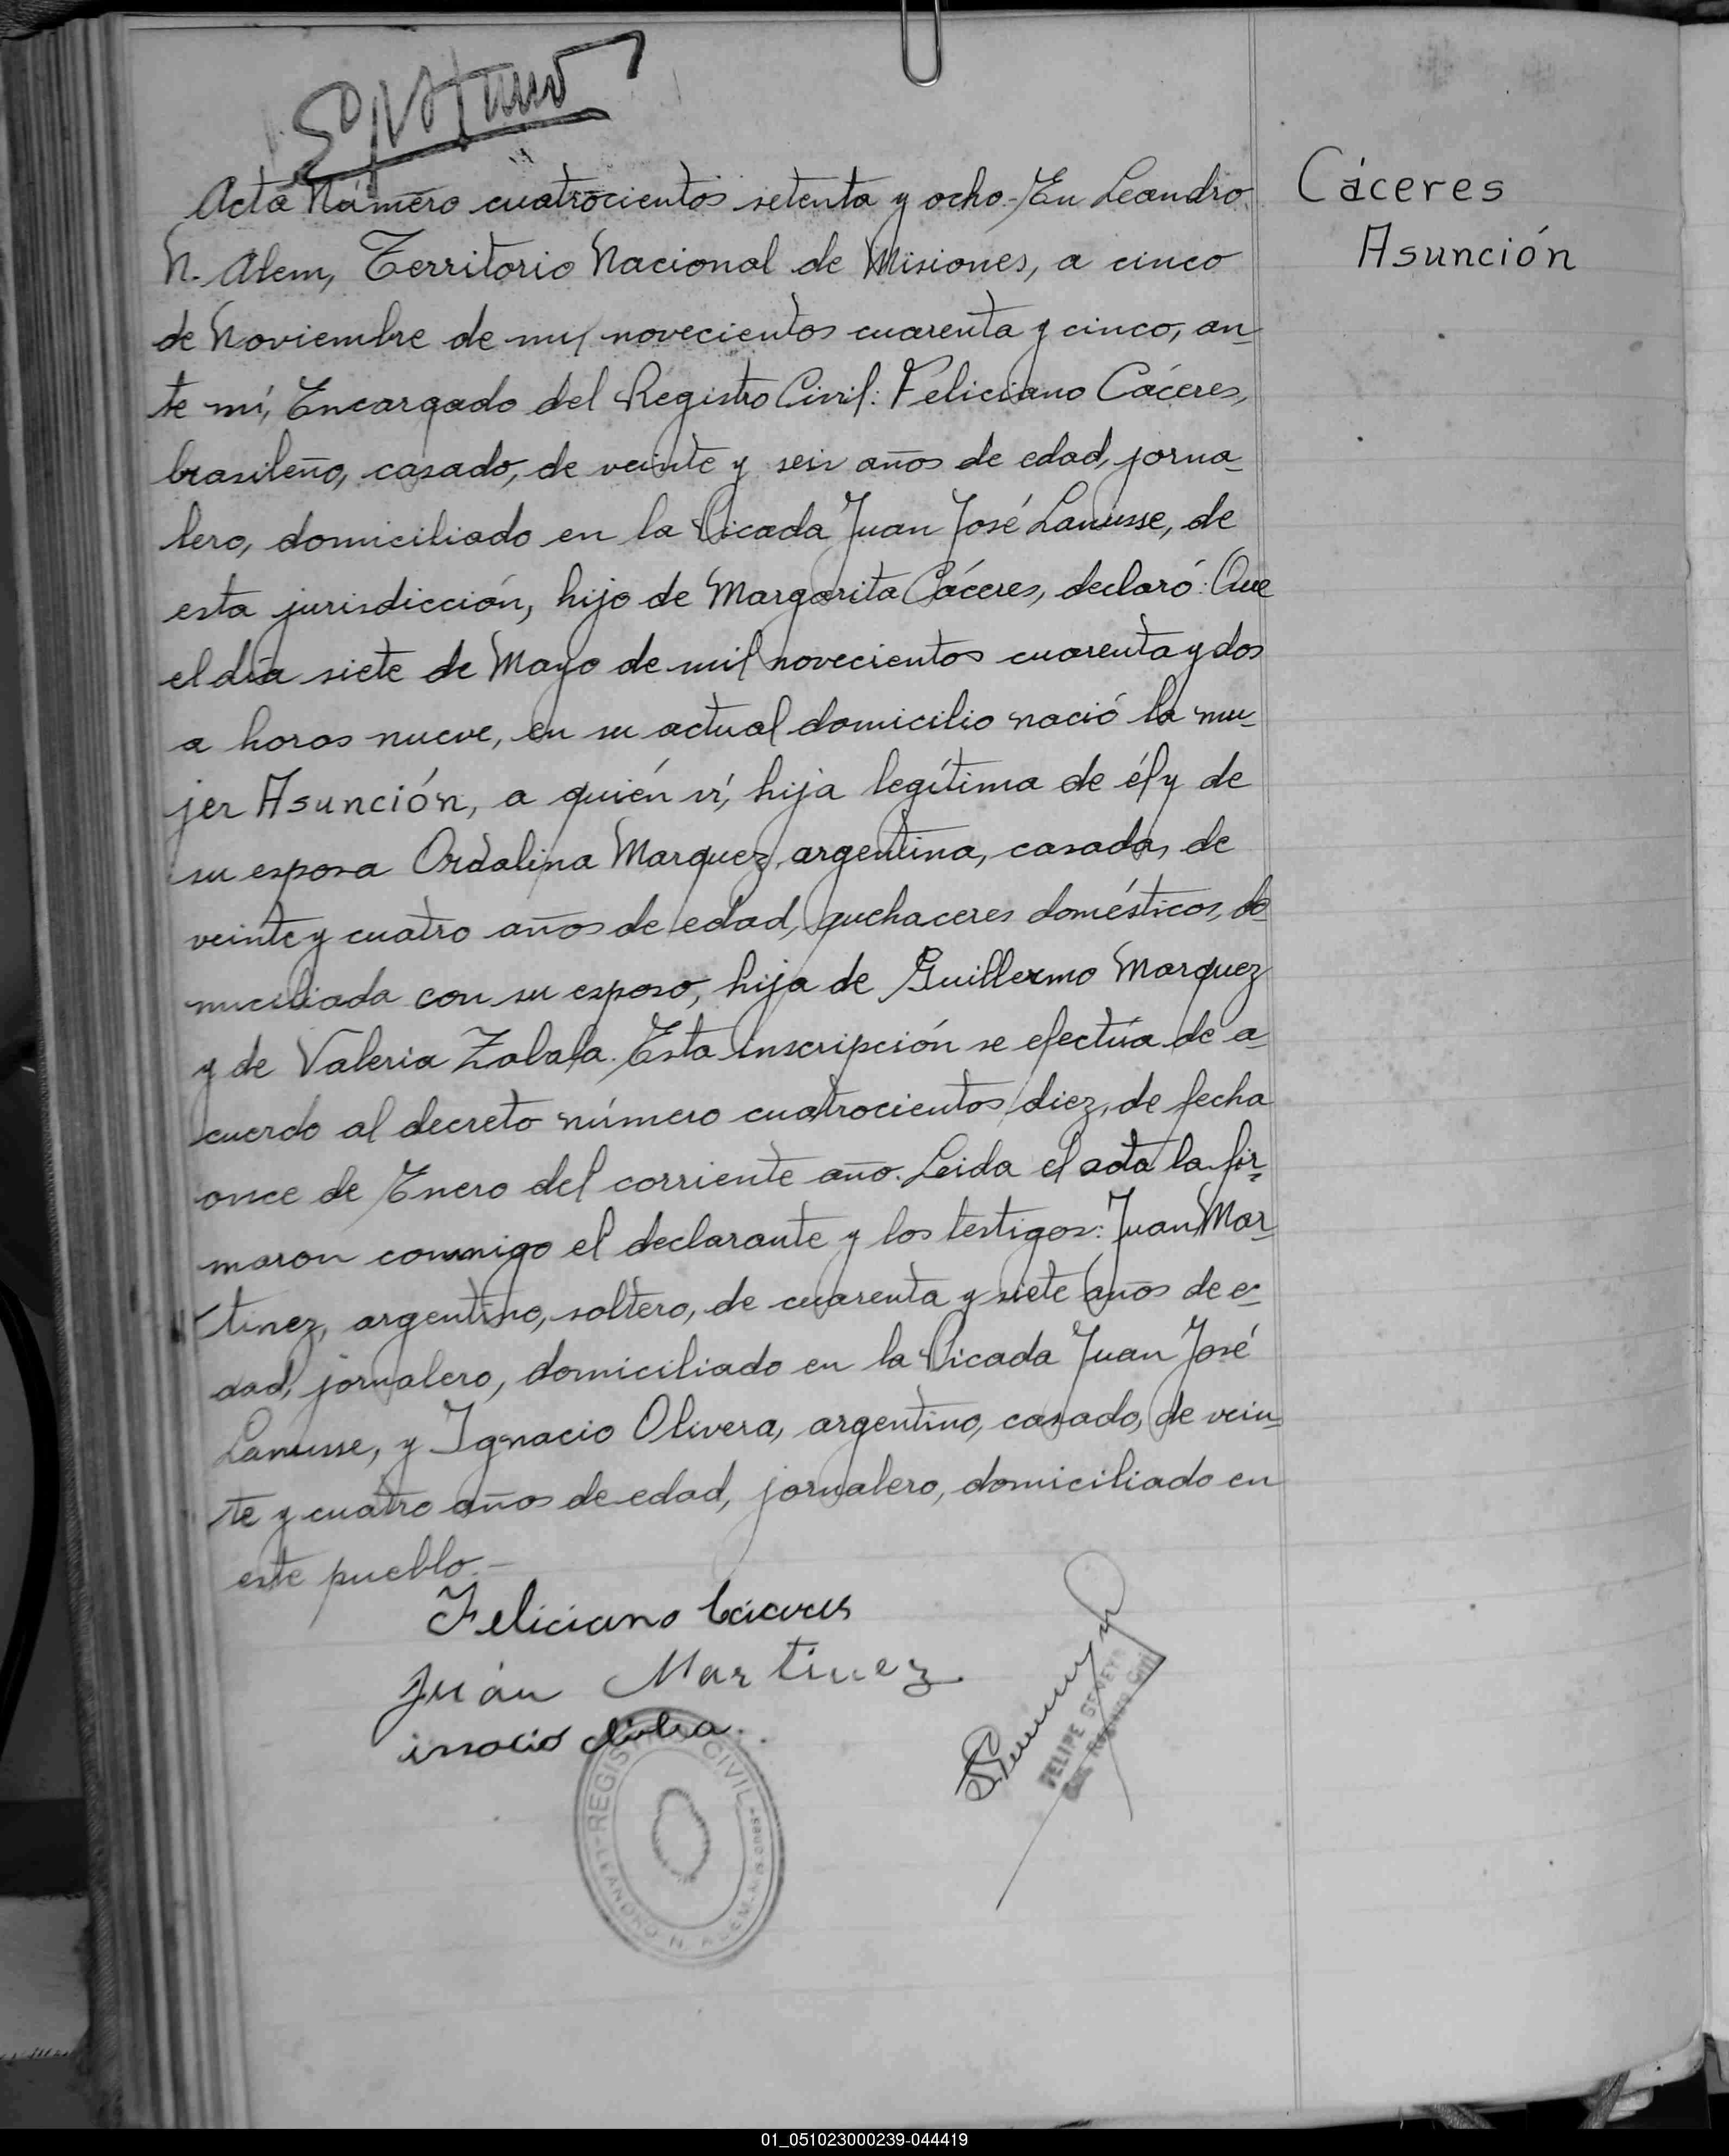 Acta Número cuatrocientos setenta y ocho.- En Leandro
N. Alem, Territorio Nacional de Misiones, a cinco
de Noviembre de mil novecientos cuarenta y cinco, an-
te mí, Encargado del Registro Civil: Feliciano Cáceres,
brasileño, casado, de veinte y seis años de edad, jorna-
lero, domiciliado en la Picada Juan José Lanusse, de
esta jurisdicción, hijo de Margarita Cáceres, declaró: Que
el día siete de Mayo de mil novecientos cuarenta y dos
a horas nueve, en su actual domicilio nació la mu-
jer Asunción, a quién ví, hija legítima de él y de
su esposa Ordalina Marquez, argentina, casada, de
veinte y cuatro años de edad, quehaceres domésticos, do-
miciliada con su esposo, hija de Guillermo Marquez
y de Valeria Zabala. Esta inscripción se efectúa de a-
cuerdo al decreto número cuatrocientos diez, de fecha
once de Enero del corriente año. Leida el acta la fir-
maron conmigo el declarante y los testigos: Juan Mar-
tinez, argentino, soltero, de cuarenta y siete años de e-
dad, jornalero, domiciliado en la Picada Juan José
Lanusse, y Ignacio Olivera, argentino, casado, de vein-
te y cuatro años de edad, jornalero, domiciliado en
este pueblo.-
Cáceres
Asunción
Feliciano Cáceres
Juan Martinez
REGISTRO CIVIL
LEANDRO N. ALEM
FELIPE
Enc. Registro Civil
01_051023000239-044419